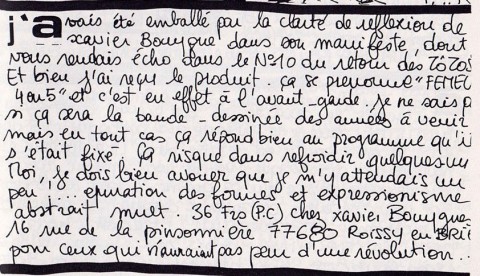 j'avais été emballé par la clarté de reflexion de
xavier Bouyque dans son manifeste, dont
vous rendais écho dans le N°10 du retour des TôTos
Et bien j'ai reçu le produit. ça se prenomme "FEMEL
4 ou 5" et c'est en effet à l'avant-garde. je ne sais p
si ça sera la bande-dessinée des années à venir
mais en tout cas ça répond bien au programme qu'il
s'était fixé. ça risque d'en refroidir quelques uns
Moi, je dois bien avouer que je m'y attendais un
peu!... épuration des formes et expressionisme
abstrait muet. 36 Frs (P.C) chez xavier Bouyque
16 rue de la pinsonnière 77680 ROISSY en BRIE
pour ceux qui n'auraient pas peur d'une révolution...